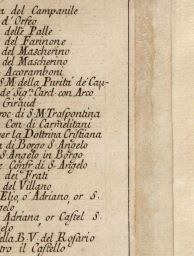 a del Campanile
d'Orfeo
delle Palle
del Farinone
del Mascherino
del Mascherino
Accoramboni
S. M. della Purità de' Cau-
de Sig.ri Card. con Arco
Giraud
roc. di S. M. Traspontina
Con. di Carmelitani
per la Dottrina Cristiana
a di Borgo S. Angelo
S. Angelo in Borgo
e Confr. di S. Angelo
dei Frati
del Villano
Elio, o Adriano, or S.
gelo
Adriana or Castel S.
elo
ella B. V. del Rosario
tro il Castello